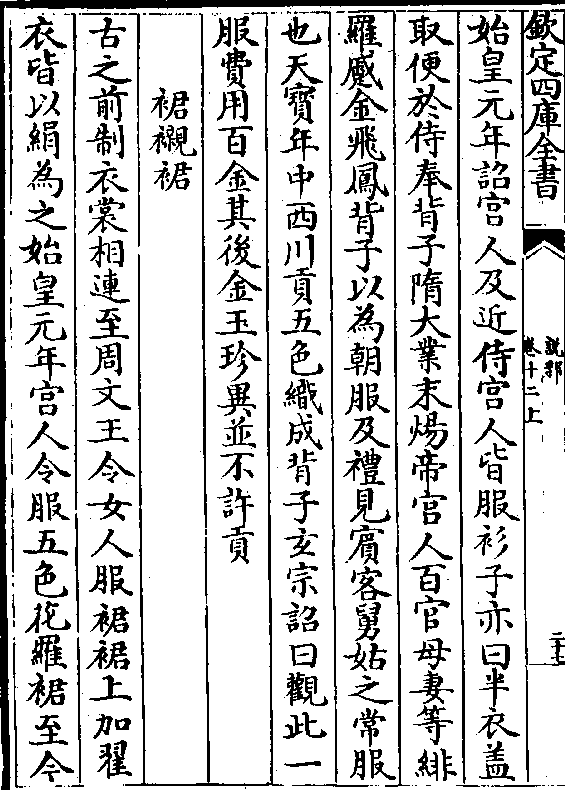 欽定四庫全書
說郛
卷十二上
二十七
始皇元年詔宫人及近侍宫人皆服衫子亦曰半衣盖
取便於侍奉背子隋大業末煬帝宫人百官母妻等緋
羅蹙金飛鳳背子以為朝服及禮見賓客舅姑之常服
也天寶年中西川貢五色織成背子玄宗詔曰觀此一
服費用百金其後金玉珍異並不許貢
裙襯裙
古之前制衣裳相連至周文王令女人服裙裙上加翟
衣皆以絹為之始皇元年宫人令服五色花羅裙至今